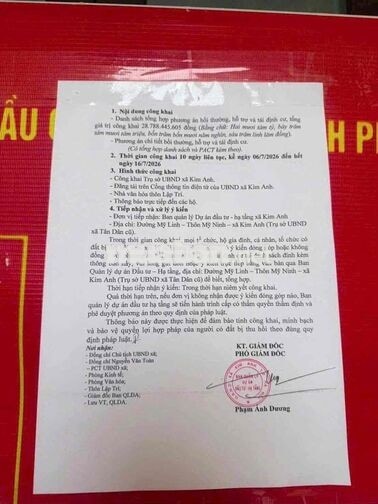 ẦU
H P
1. Nội dung công khai
- Danh sách tổng hợp phương án bồi thường, hỗ trợ và tái định cư, tổng
giá trị công khai 28.788.445.605 đồng (Bằng chữ: Hai mươi tám tỷ, bảy trăm
tám mươi tám triệu, bốn trăm bốn mươi năm nghìn, sáu trăm linh năm đồng).
- Phương án chi tiết bồi thường, hỗ trợ và tái định cư.
(Có tổng hợp danh sách và PACT kèm theo).
2. Thời gian công khai 10 ngày liên tục, kể từ ngày 06/7/2026 đến hết
ngày 16/7/2026
3. Hình thức công khai
- Công khai Trụ sở UBND xã Kim Anh.
- Đăng tải trên Cổng thông tin điện tử của UBND xã Kim Anh.
- Nhà văn hóa thôn Lập Trí.
- Thông báo trực tiếp đến các hộ.
4. Tiếp nhận và xử lý ý kiến
- Đơn vị tiếp nhận: Ban Quản lý Dự án đầu tư - hạ tầng xã Kim Anh
- Địa chỉ: Đường Mỹ Linh – Thôn Mỹ Ninh – xã Kim Anh (Trụ sở UBND
xã Tân Dân cũ).
Trong thời gian công khai, mọi tổ chức, hộ gia đình, cá nhân, tổ chức có
đất bị ý kiến đóng góp hoặc không
danh sách đính kèm
thông báo này, vui lòng gửi đơn hoặc ý kiến trực tiếp bằng văn bản qua Ban
Quản lý dự án Đầu tư - Hạ tầng, địa chỉ: Đường Mỹ Linh – Thôn Mỹ Ninh – xã
Kim Anh (Trụ sở UBND xã Tân Dân cũ) để biết, tổng hợp.
Thời hạn tiếp nhận ý kiến: Trong thời hạn niêm yết công khai.
Quá thời hạn trên, nếu đơn vị không nhận được ý kiến đóng góp nào, Ban
quản lý dự án hạ tầng sẽ tiến hành trình cấp có thẩm quyền thẩm định và
phê duyệt phương án theo quy định của pháp luật.
Thông báo này được thực hiện để đảm bảo tính công khai, minh bạch
và bảo vệ quyền lợi hợp pháp của người có đất bị thu hồi theo đúng quy
định pháp luật./.
Nơi nhận:
- Đồng chí Chủ tịch UBND xã;
- Đồng chí Nguyễn Văn Toàn
– PCT UBND xã;
- Phòng Kinh tế;
- Phòng Văn hóa;
- Thôn Lập Trí;
- Giám đốc Ban QLDA;
- Lưu VT, QLDA.
KT. GIÁM ĐỐC
PHÓ GIÁM ĐỐC
BAN QUẢN LÝ
DỰ ÁN
ĐẦU TƯ HẠ TẦNG
Phạm Ánh Dương